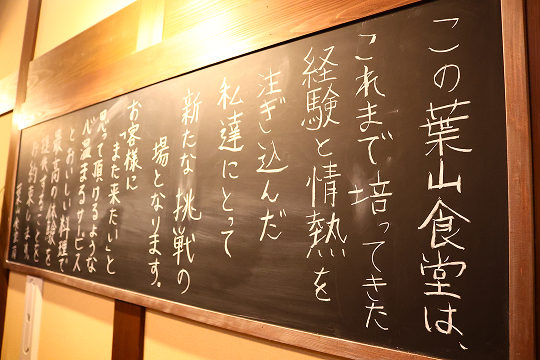 この葉山食堂は、
これまで培ってきた
経験と情熱を
注ぎ込んだ
私達にとって
新たな挑戦の
場となります。
お客様に
「また来たい」と
思って頂けるような
心温まるサービス
とおいしい料理で
最高の体験を
提供することを
お約束します。